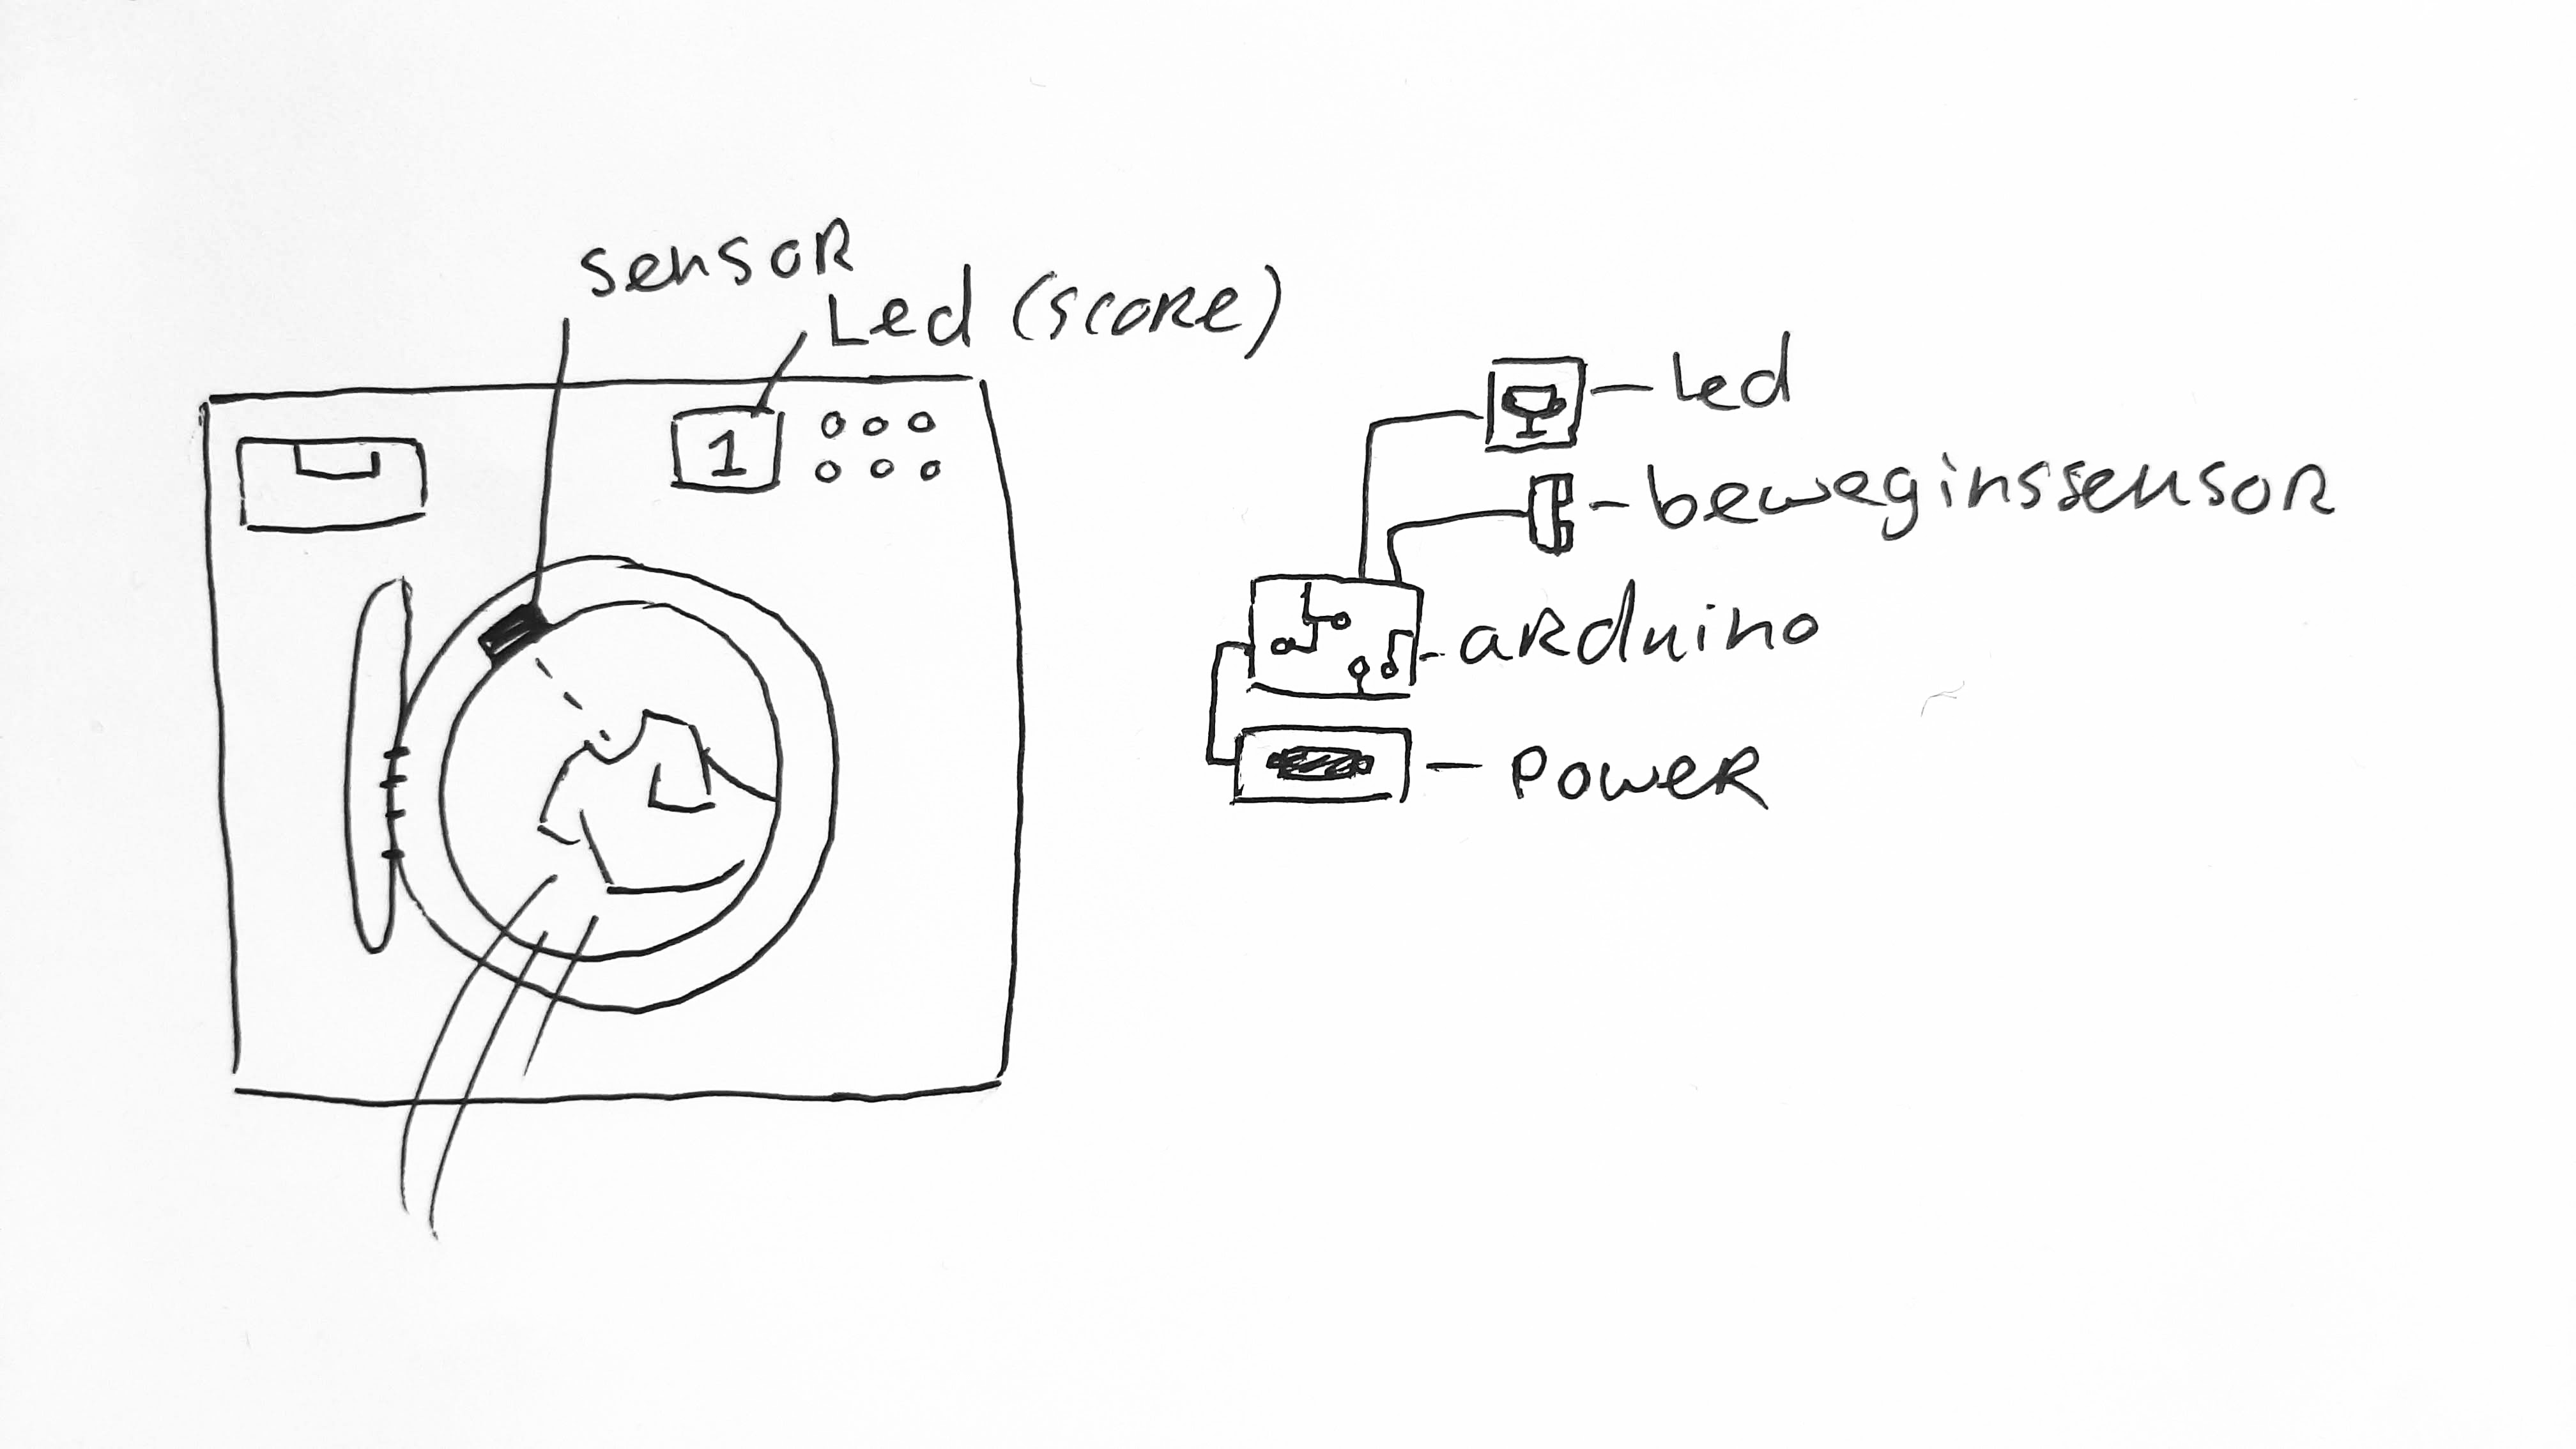 sensor
Led (score)
1
Led
beweginssensor
arduino
power